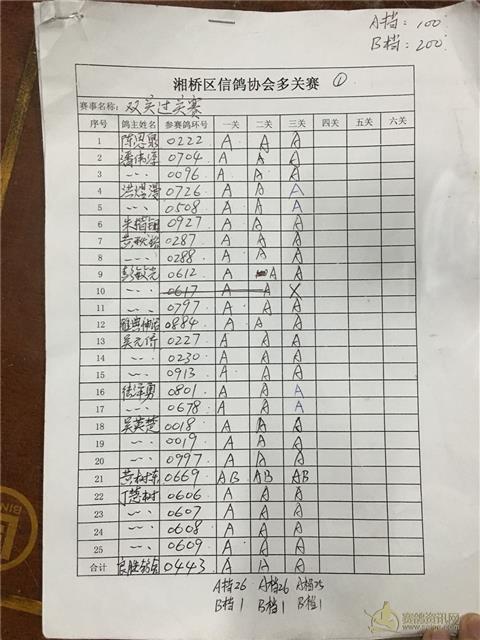 A档：100
B档：200
湘桥区信鸽协会多关赛 ①
赛事名称：双关过关赛
序号 鸽主姓名 参赛鸽环号 一关 二关 三关 四关 五关 六关
1 0222 A A A
2 潘伟淳 0704 A A A
3 〃 0096 A A A
4 0726 A A A
5 〃 0508 A A A
6 0927 A A A
7 0287 A A A
8 〃 0288 A A A
9 彭敏克 0612 A A A
10 〃 0617 A X
11 〃 0797 A A A
12 0884 A A A
13 吴元侨 0227 A A A
14 〃 0230 A A A
15 〃 0913 A A A
16 0801 A A A
17 〃 0678 A A A
18 吴英楚 0018 A A A
19 〃 0019 A A A
20 〃 0997 A A A
21 黄树东 0669 AB AB AB
22 丁楚树 0606 A A A
23 〃 0607 A A A
24 〃 0608 A A A
25 〃 0609 A A A
合计 0443 A A A
A档26 A档26 A档25
B档1 B档1 B档1
赛鸽资讯网